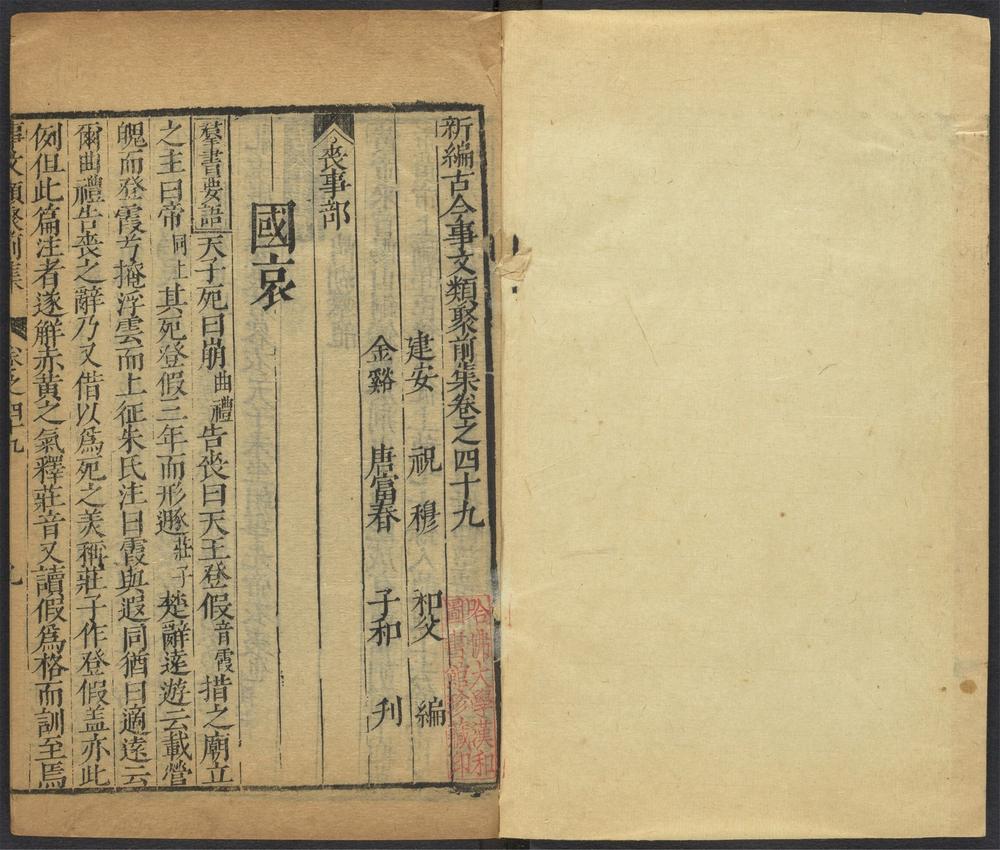 新編古今事文類聚前集卷之四十九
建安 祝 穆 和父 編
金谿 唐富春 子和 刋
喪事部
國哀
羣書要語 天子死曰崩曲禮告喪曰天王登假音霞措之廟立
之主曰帝同上其死登假三年而形遯莊子楚辭遠遊云載營
魄而登霞兮掩浮雲而上征朱氏注曰霞與遐同猶曰適遠云
爾曲禮告喪之辭乃又借以爲死之美稱莊子作登假盖亦此
例但此篇注者遂觧赤黃之氣釋莊音又讀假爲格而訓至焉
事文類聚前集 卷之四十九
哈佛大學漢和
圖書館珍藏印